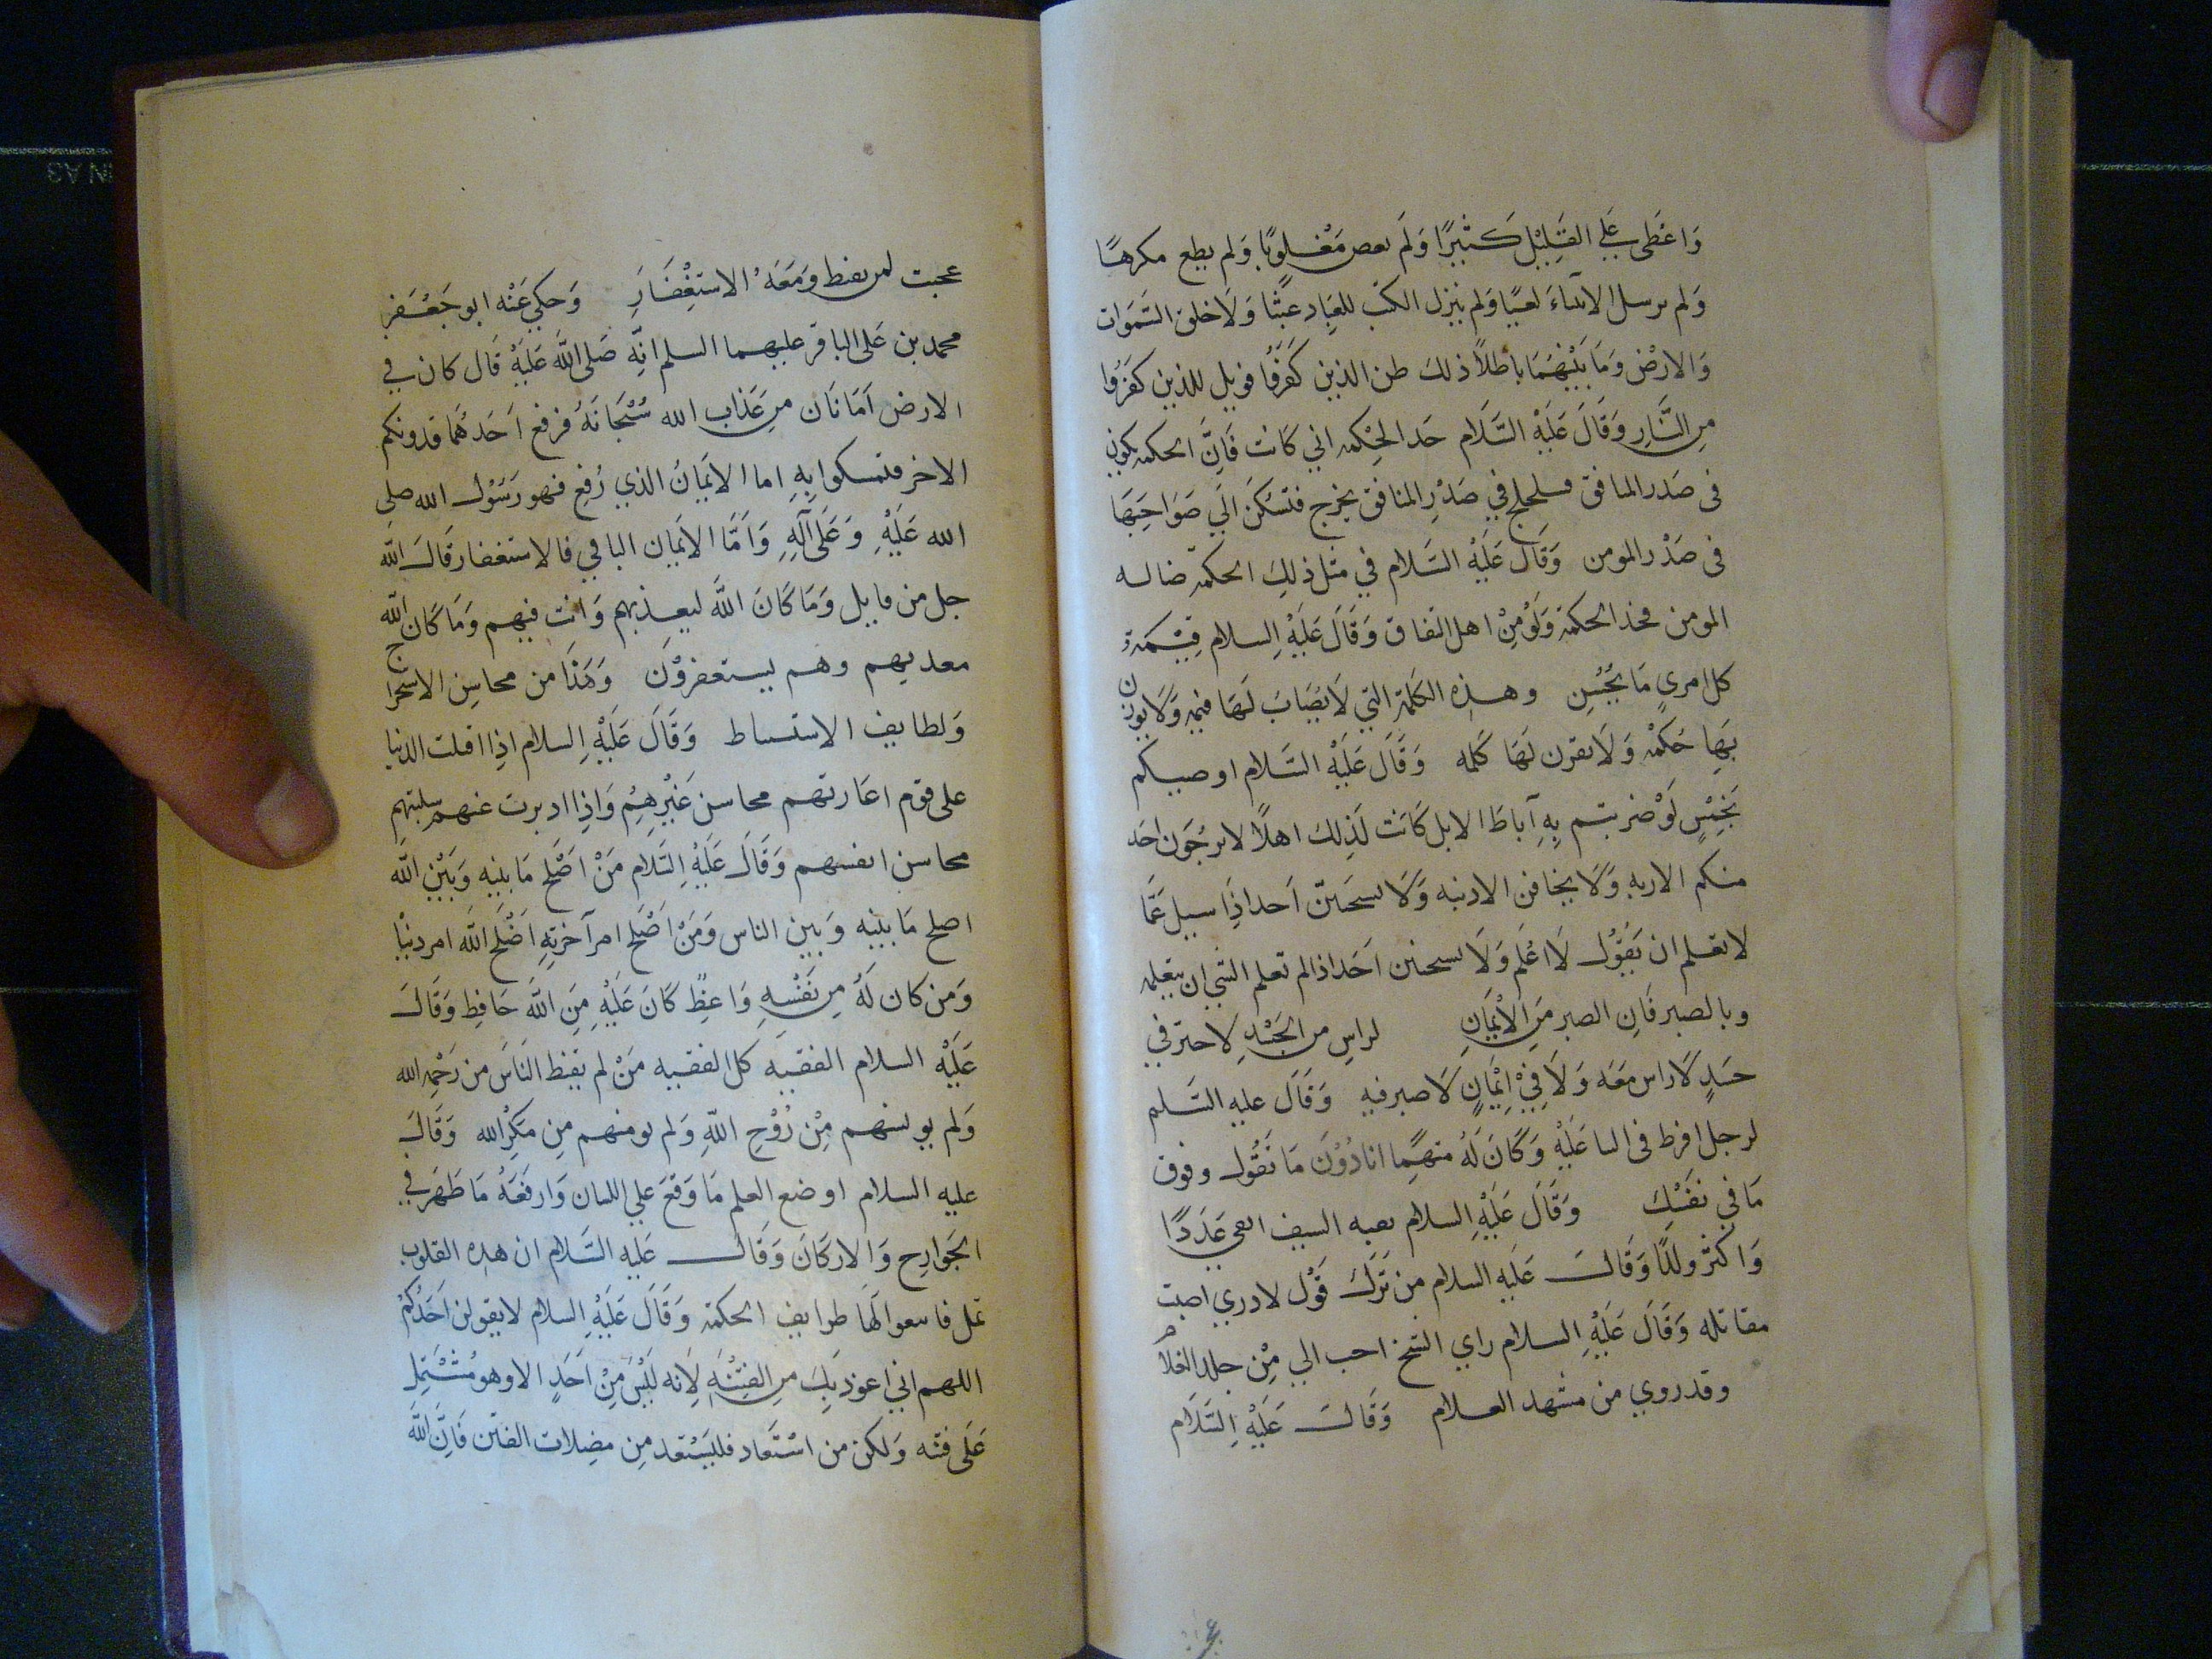 وَاعَطى عَلي القَلِيْل كَثيرًا وَلَم يعص مَغْلوبًا وَلم يطع مكرهًا
وَلم يرسل الانبياءَ لعبًا وَلم ينزل الكتب للعِبَاد عَبَثًا وَلَا خلق السَّمَوات
وَالارْض وَمَا بَيْنهُمَا باطلاً ذلكَ ظن الذين كَفَرُوا فويل للذين كفرُوا
مِن النَّارِ وَقَالَ عَلَيْهِ السَّلَام خذ الحِكمه اني كَانت فَاِنَّ الحكمه تكون
فى صَدر المنافق فتلجلج في صَدْرِ المنافق يخرج فتسْكنَ الَي صَوَاحِبِهَا
فى صَدْر المومن وَقَال عَلَيْهِ السَّلَام في مثل ذلِكَ الحكمة ضاله
المومن فخذ الحكمة وَلَوْ مِنْ اهل النفاق وَقَالَ عَلَيْهِ السلام قيْمَة
كل امريٍ مَا يُحْسِن وهذِه الكلمة التي لَا يُصَابَ لهَا قيمه وَلَا يوزن
بهَا حُكمه وَلَا يقرن لهَا كلمه وَقَالَ عَلَيْهِ السَّلَام اوصيكم
بَخِمْسٍ لَوْ ضربتم بِهِ آباطَ الابل كَانَت لَذِلكَ اهلاً لا يرجُوَن احَد
منكم الا ربه وَلَا يخافن الا ذنبه وَلَا يسحَيَنّ اَحد اذَا سيل عَمَّا
لا يعلم ان يَقُوْل لَا اعْلَم وَلَا يسحيَن اَحَد اذا لم تعلم الشي ان يتعلمه
وبالصبر فَاِن الصبر مِنَ الْاِيْمَانِ لراسِ من الجَسَدِ لا خير في
جسَدٍ لَا راس معَه وَلَا فِيْ اِيْمَانٍ لَا صبر فيهِ وَقَالَ عليه السَّلم
لرجل افرط فى الثنا عَلَيْهِ وَكَانَ لَهُ متهمًا انا دُوْنَ مَا تَقُول وفوق
مَا في نفَسْك وَقَالَ عَلَيْهِ السلام بقيه السيف ابقي عَدَدًا
وَاكثَرُ ولدًا وَقَالَ عَلَيهِ السلام من تَرَكَ قَوْل لا دري اصيبت
مقاتله وَقَالَ عَلَيْهِ السلام راي الشيخ احب الي مِنْ جلد الغلام
وقد روي من مشهد الغلام وَقَالَ عَلَيْهِ السَّلَام
عجبت لمن يقنط وَمَعَهُ الاستِغْفَارَ وَحكي عَنْه ابو جَعْفَر
محمد بن عَلى الباقر عليهما السلم انّه صَلى اللّه عَلَيْهِ قَال كان في
الارض اَمَانَان مِن عَذَاب الله سُبْحَانَهُ فرفع اَحَدهُمَا فدونكم
الاخر فتمسكوا بِهِ اما الايمَانُ الذي رُفِع فهو رَسُوْل الله صلي
الله عَلَيْهِ وَعَلَى آلِهِ وَاَمَّا الايَمان الباقي فالاستغفار قَالَ اللّه
جل من قايل وَمَا كَانَ اللّه ليعذبهم وَانت فيهم وَمَا كَان اللّه
معذبهم وهم يستغفروْن وَهَذَا من محاسِن الاستخراج
وَلطايف الاستنباط وَقَالَ عَلَيْهِ السلام اذِا اقبلت الدنيا
على قوم اعَارتهم محاسن غَيْرهِمْ وَاذِا ادبرت عنهم سلبتهم
محاسن انفسهم وَقَالَ عَلَيْهِ السَّلام مَنْ اصْلَح مَا بينه وَبَيْن اللّه
اصلح مَا بينه وَبين الناس وَمَنْ اصْلَح امر آخرتِه اصْلَح اللّه امر دنيَا
وَمن كان لَهُ مِن نَفسْهِ وَاعظً كَانَ عَلَيْهِ مِنَ اللّه حَافِظ وَقَالَ
عَلَيْهِ السلام الفقيه كل الفقيه مَنْ لم يقنط النَاسَ من رَحْمهِ الله
وَلم يويسهم مِنْ رُوْحِ اللّهِ وَلم يومنهم مِن مَكِر الله وَقَالَ
عليه السلام اوضع العلم مَا وَقعَ علي اللسان وَارفعَهُ مَا ظهَر في
الجَوارِحِ وَالاركَانَ وَقَال عَليه السَّلام ان هذه القلوب
تمل فابتعوا لهَا طرايف الحكمة وَقَالَ عَلَيْهِ السلام لا يقولن اَحَدُكمْ
اللهم اني اعوذ بِكَ مِن الفِتْنَهِ لِانه لَيْسَ مِنْ اَحَدٍ الا وهو مُشْتَمِل
عَلى فتنه وَلكن من اسْتَعاذ فليَسْتعذ مِن مضلات الفتن فَاِنَّ اللَّهَ